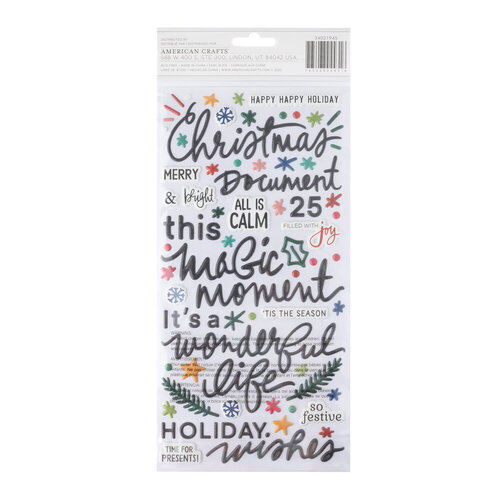 AMERICAN CRAFTS
588 W. 400 S., STE 300, LINDON, UT 84042 USA.
34021945
HAPPY HAPPY HOLIDAY
Christmas
MERRY
& bright
Document
ALL IS
CALM
25
this
FILLED WITH
joy
magic
moment
'TIS THE SEASON
It's a
wonderful
life
so
festive
HOLIDAY
wishes
TIME FOR
PRESENTS!